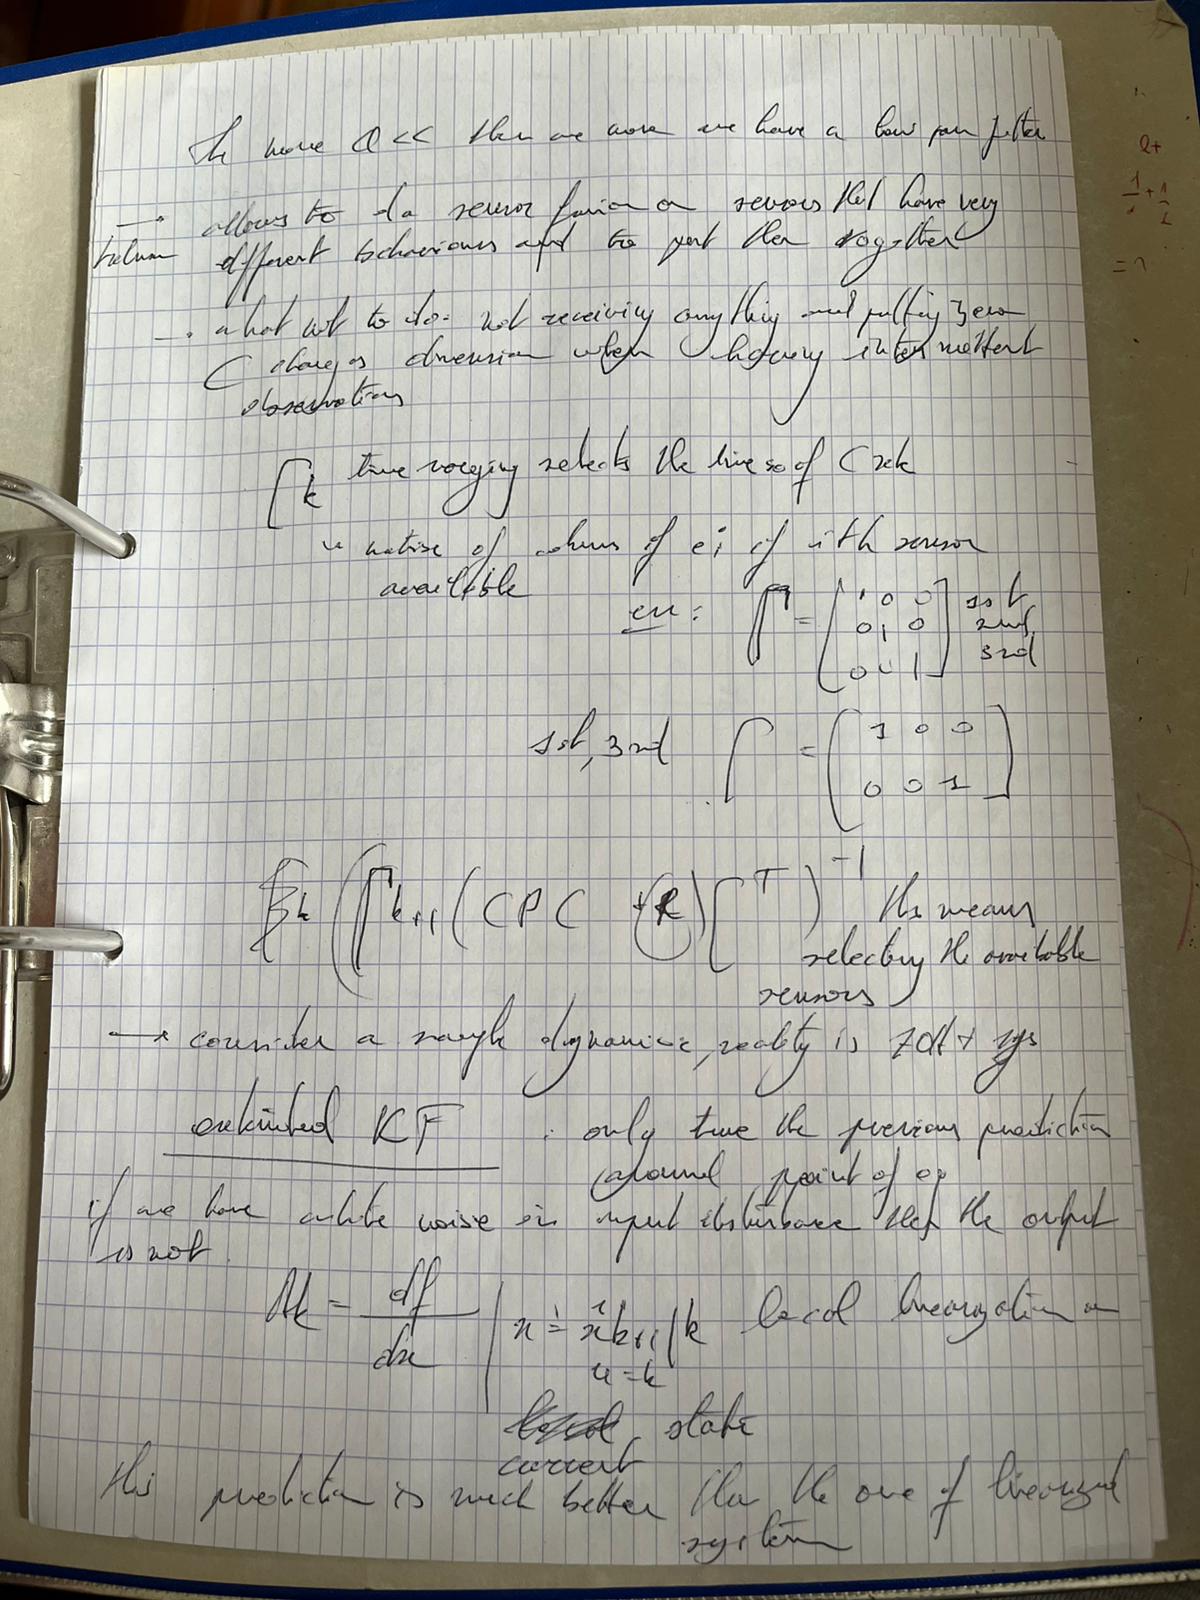 The more Q << then we more we have a low pass filter
→ allows to do sensor fusion on sensors that have very
different behaviours and to put then together
→ what not to do: not receiving anything and putting zero
C changes dimension when having intermittent
observations
Γk time varying selects the lines of C xk
matrix of colums of ei if ith sensor
available
ex: Γ = [1 0 0 1st
0 1 0 2nd
0 0 1] 3rd
1st, 3rd Γ = [1 0 0
0 0 1]
(Γk+1 (CPC + R) Γ^T)^-1 this means
selecting the available
sensors
→ consider a dynamic, reality is
extended KF : only true the previous prediction
around point of
if we have white noise in input disturbance then the output
is not
Ak = df/dx | x = x̂k+1|k local linearization on
u=k
state
current
this prediction is much better than the one of linearized
system